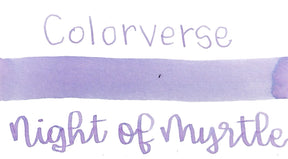 Colorverse
Night of Myrtle